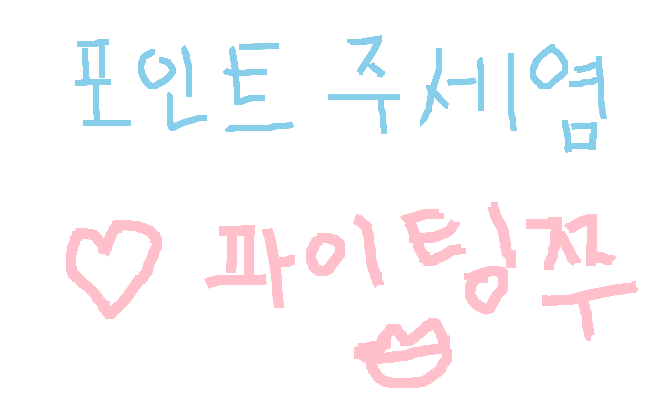 포인트 주세염
♡ 파이팅쮸